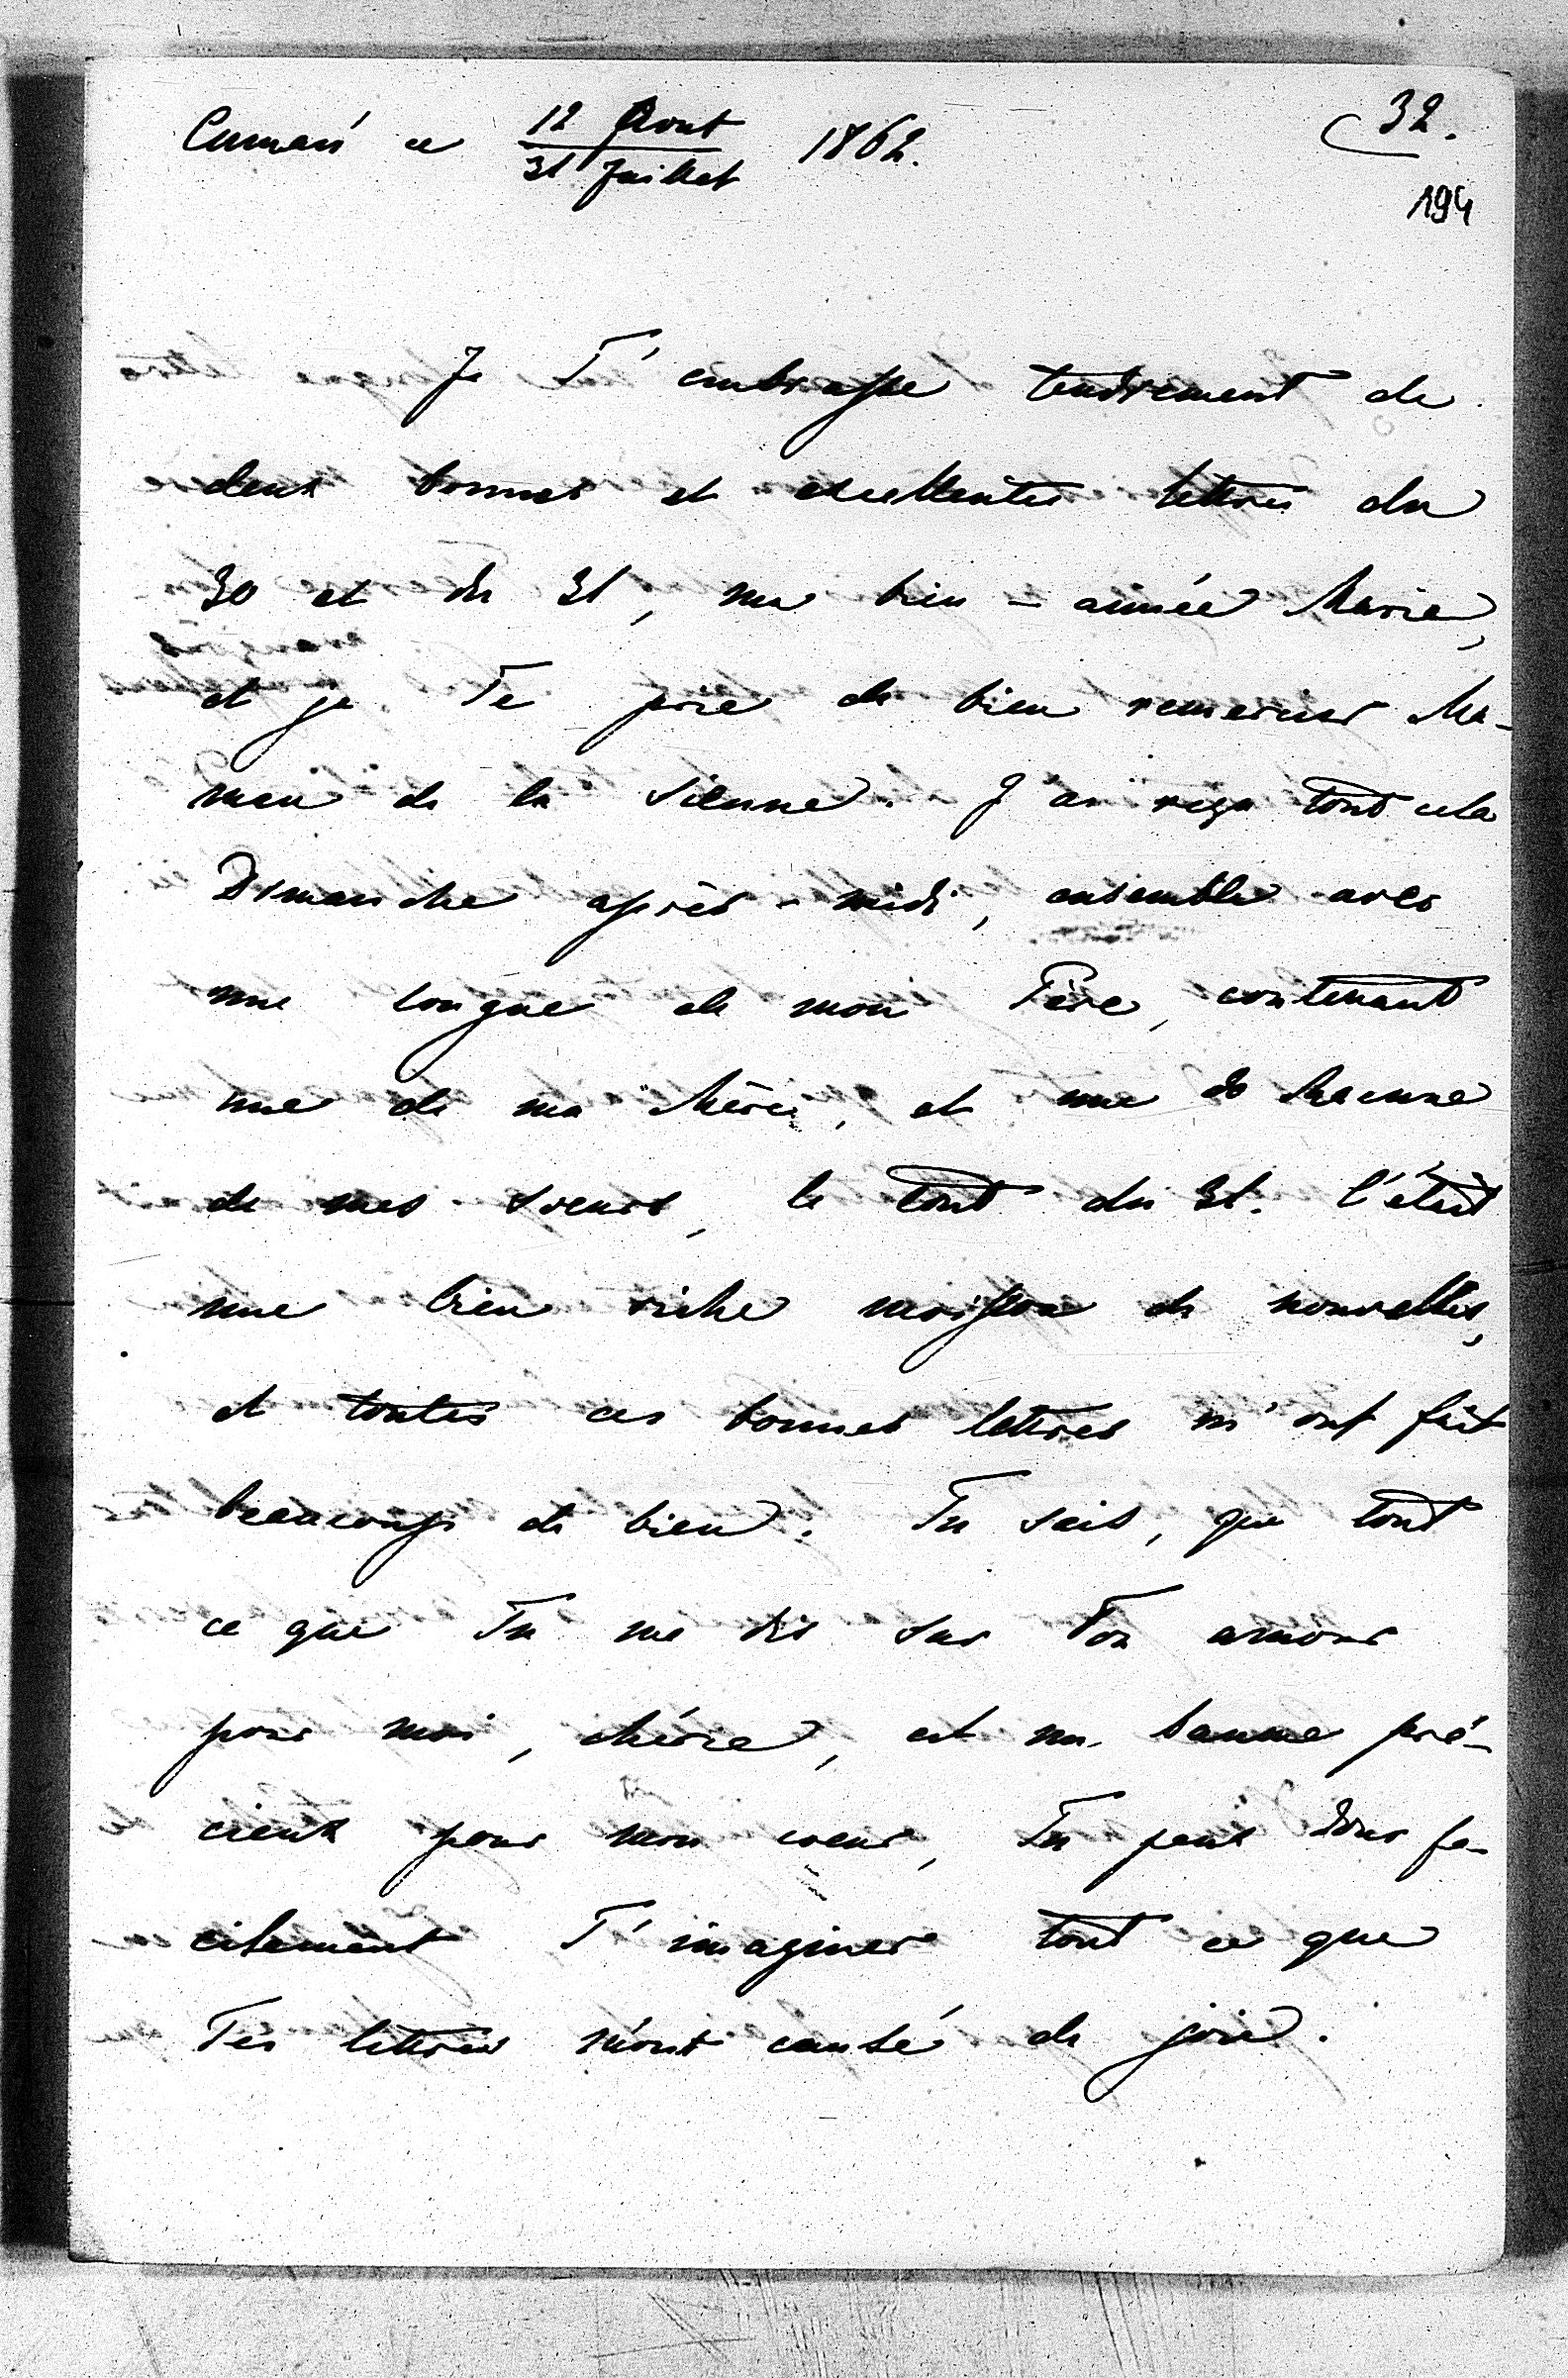 ce 12 Aout / 31 Juillet 1862.
32.
194
Je T'embrasse tendrement de
deux bonnes et excellentes lettres du
30 et du 31, ma bien-aimée Marie,
et je Te prie de bien remercier Ma-
man de la sienne. J'ai reçu tout cela
Dimanche après-midi, ensemble avec
une longue de mon Père, contenant
une de ma Mère, et une de chacune
de mes soeurs, le tout du 31. C'était
une bien riche moisson de nouvelles,
et toutes ces bonnes lettres m'ont fait
beaucoup de bien. Tu sais, que tout
ce que Tu me dis sur Ton amour
pour moi, chérie, est un baume pré-
cieux pour mon coeur, Tu peux donc fa-
cilement T'imaginer tout ce que
Tes lettres m'ont causé de joie.